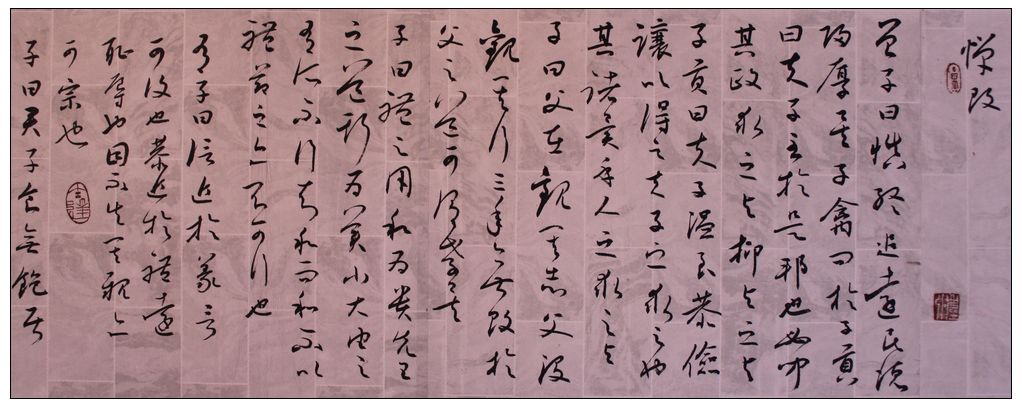 憚改
曾子曰慎終追遠民德
歸厚矣子禽問於子貢
曰夫子至於是邦也必聞
其政求之與抑與之與
子貢曰夫子溫良恭儉
讓以得之夫子之求之也
其諸異乎人之求之與
子曰父在觀其志父沒
觀其行三年無改於
父之道可謂孝矣
子曰禮之用和为貴先王
之道斯为美小大由之
有所不行知和而和不以
禮節之亦不可行也
有子曰信近於義言
可復也恭近於禮遠
恥辱也因不失其親亦
可宗也
子曰君子食無飽居